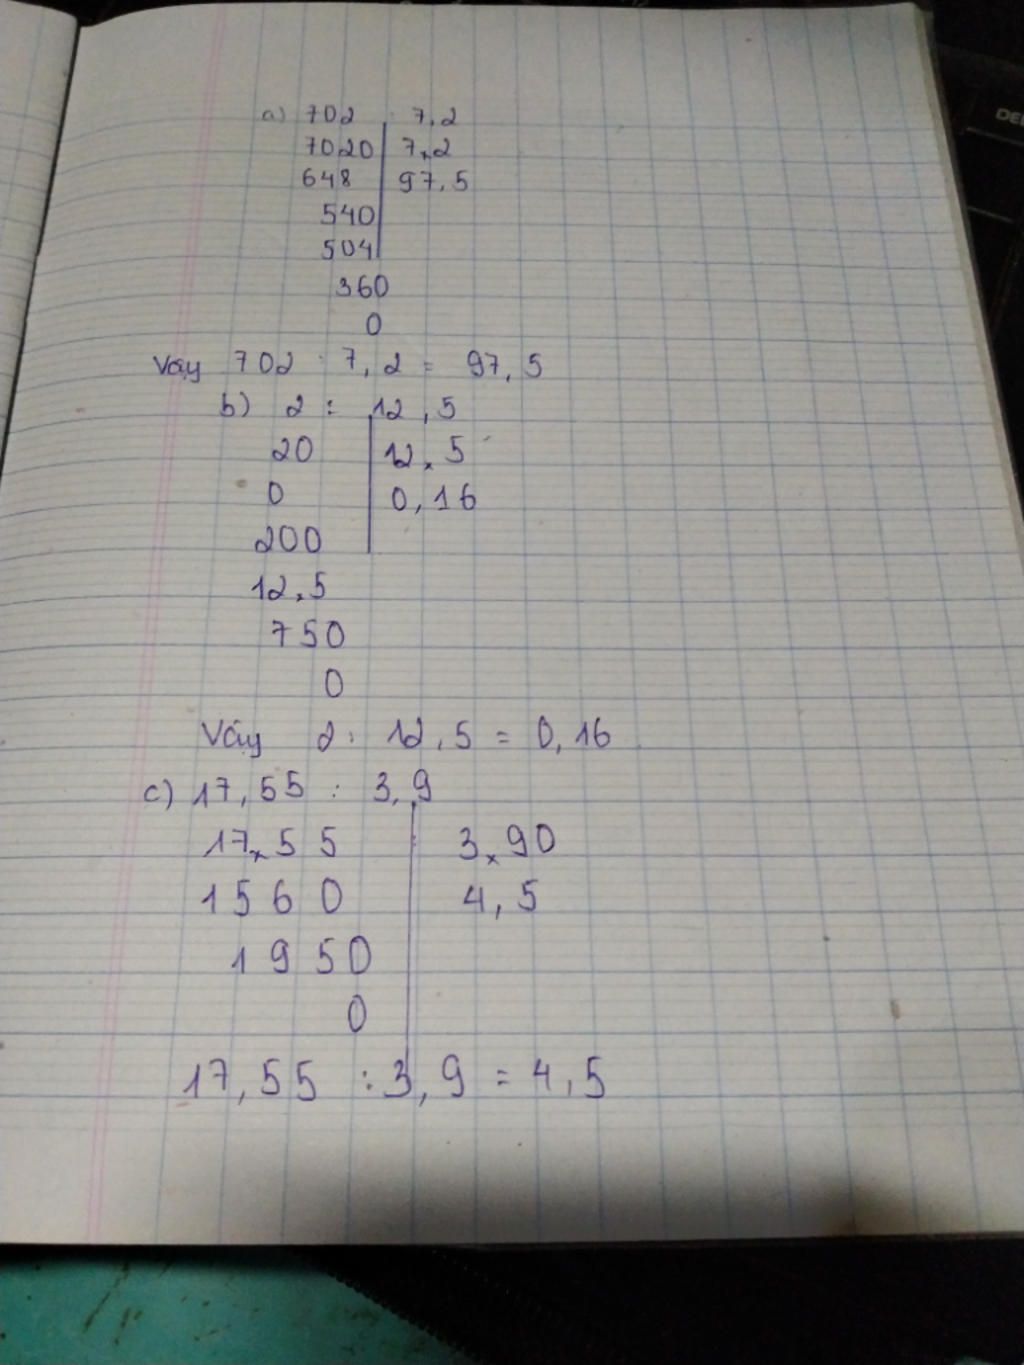 a) 702 : 7,2
7020 7,2
648 97,5
540
504
360
0
Vậy 702 : 7,2 = 97,5
b) 2 : 12,5
20 12,5
0 0,16
200
12,5
750
0
Vậy 2 : 12,5 = 0,16
c) 17,55 : 3,9
17,55 3,90
1560 4,5
1950
0
17,55 : 3,9 = 4,5